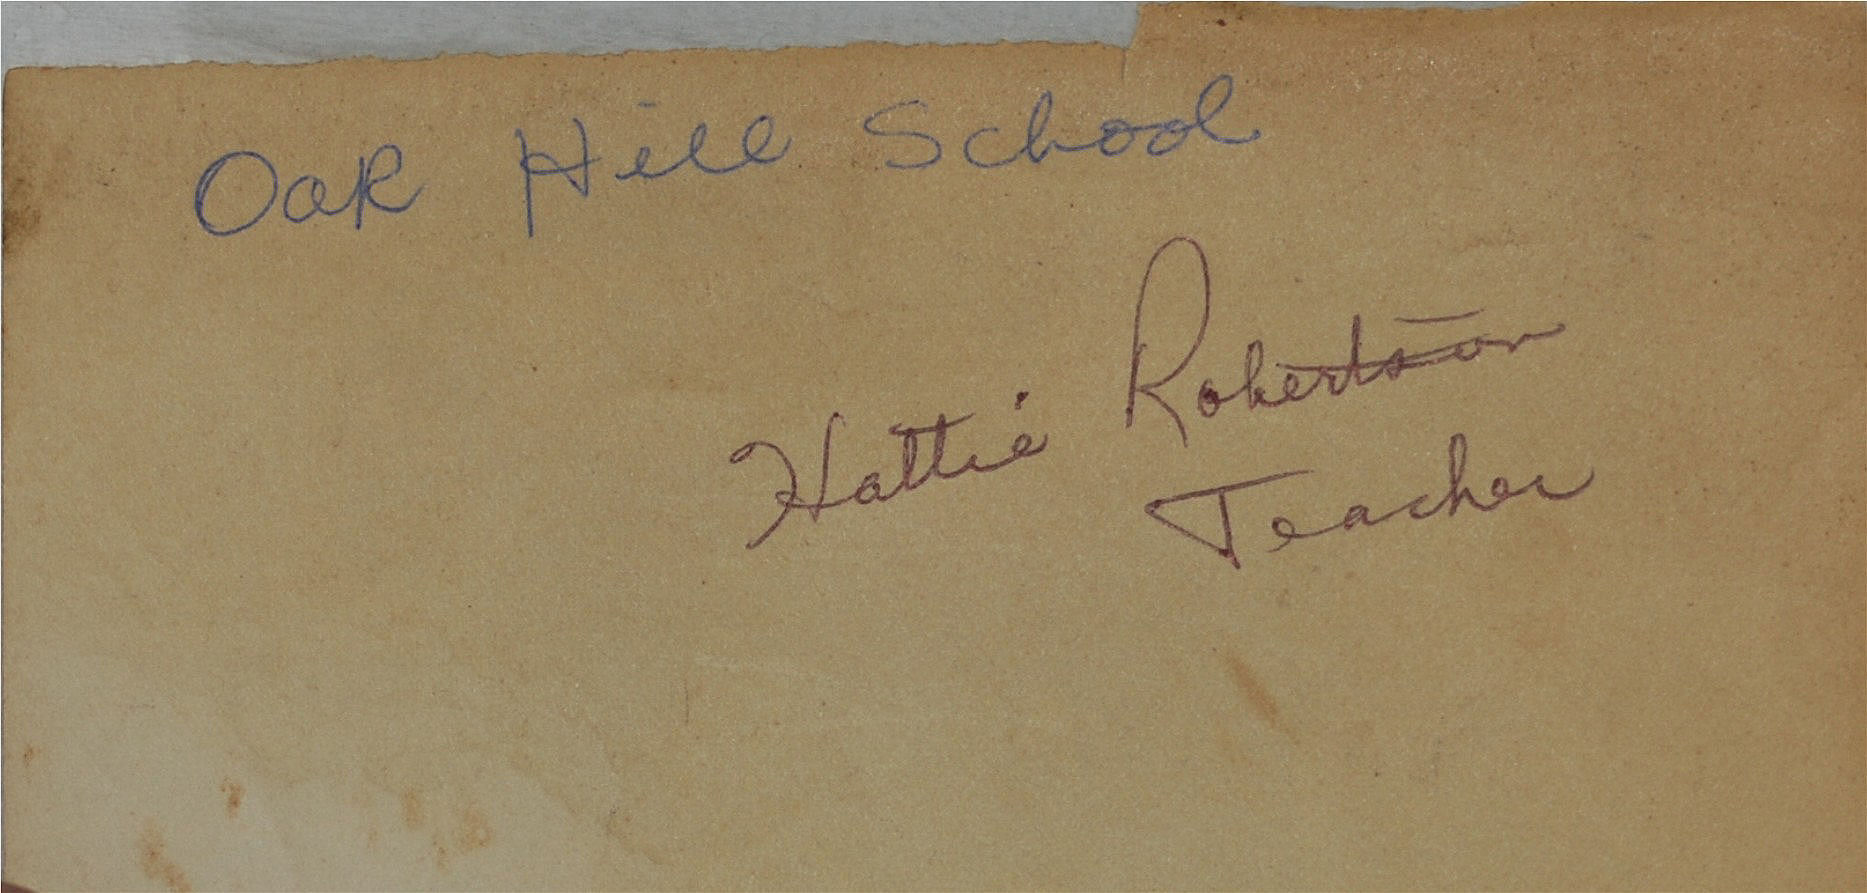 Oak Hill School
Hattie Robertson
Teacher